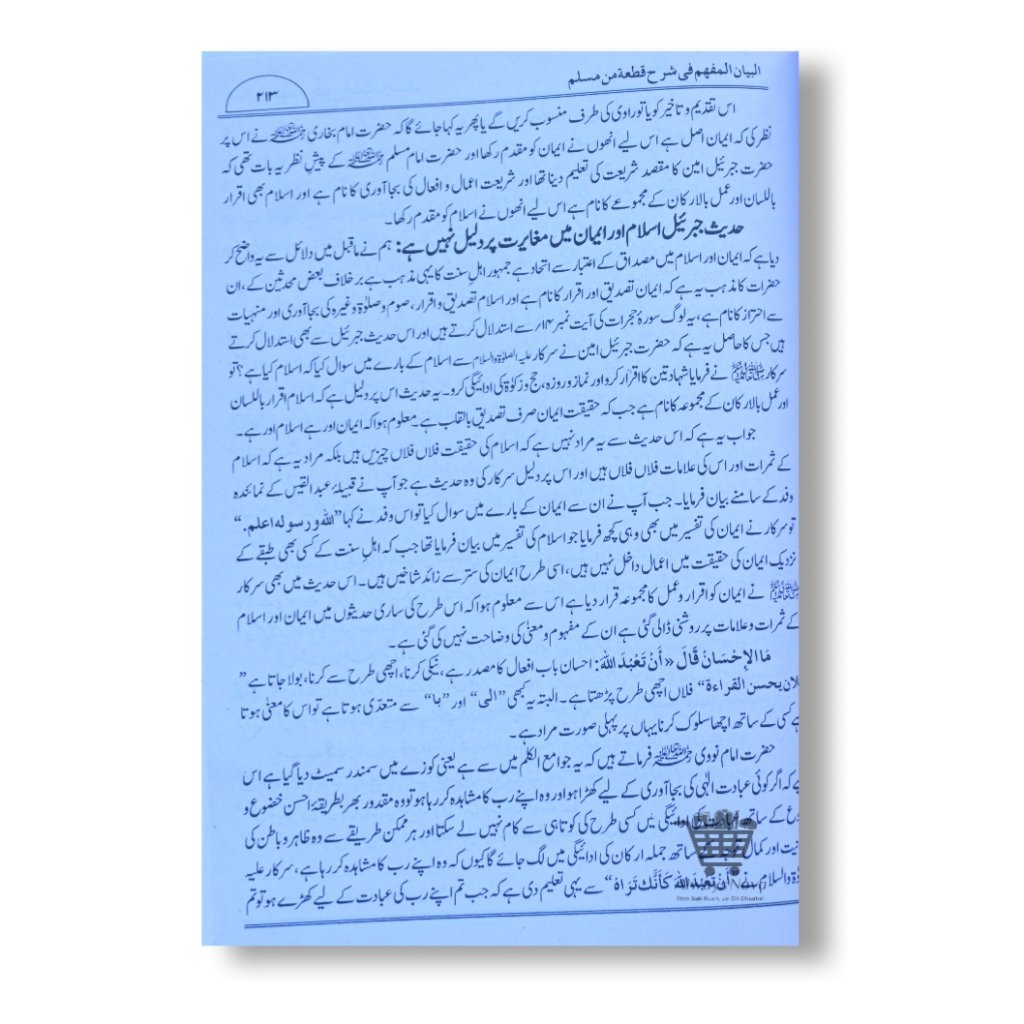 البیان المفهم فی شرح قطعة من مسلم
۲۱۳
اس تقدیم و تاخیر کو یا تو راوی کی طرف منسوب کریں گے یا پھر یہ کہا جائے گا کہ حضرت امام بخاری نے اس پر
نظر کی کہ ایمان اصل ہے اس لیے انھوں نے ایمان کو مقدم رکھا اور حضرت امام مسلم کے پیش نظر یہ بات تھی کہ
حضرت جبرئیل امین کا مقصد شریعت کی تعلیم دینا تھا اور شریعت اعمال و افعال کی بجا آوری کا نام ہے اور اسلام بھی اقرار
باللسان اور عمل بالارکان کے مجموعے کا نام ہے اس لیے انھوں نے اسلام کو مقدم رکھا۔
حدیث جبرئیل اسلام اور ایمان میں مغایرت پر دلیل نہیں ہے: ہم نے ماقبل میں دلائل سے یہ واضح کر
دیا ہے کہ ایمان اور اسلام میں مصداق کے اعتبار سے اتحاد ہے جمہور اہل سنت کا یہی مذہب ہے برخلاف بعض محدثین کے، ان
حضرات کا مذہب یہ ہے کہ ایمان تصدیق اور اقرار کا نام ہے اور اسلام تصدیق و اقرار، صوم و صلوٰۃ وغیرہ کی بجا آوری اور منہیات
سے احتراز کا نام ہے، یہ لوگ سورۂ حجرات کی آیت نمبر ۱۴؍ سے استدلال کرتے ہیں اور اس حدیث جبرئیل سے بھی استدلال کرتے
ہیں جس کا حاصل یہ ہے کہ حضرت جبرئیل امین نے سرکار علیہ الصلوٰۃ والسلام سے اسلام کے بارے میں سوال کیا کہ اسلام کیا ہے؟ تو
سرکار ﷺ نے فرمایا شہادتین کا اقرار کرو اور نماز و روزہ، حج و زکوٰۃ کی ادائیگی کرو۔ یہ حدیث اس پر دلیل ہے کہ اسلام اقرار باللسان
اور عمل بالارکان کے مجموعہ کا نام ہے جب کہ حقیقت ایمان صرف تصدیق بالقلب ہے۔ معلوم ہوا کہ ایمان اور ہے اسلام اور ہے۔
جواب یہ ہے کہ اس حدیث سے یہ مراد نہیں ہے کہ اسلام کی حقیقت فلاں فلاں چیزیں ہیں بلکہ مراد یہ ہے کہ اسلام
کے ثمرات اور اس کی علامات فلاں فلاں ہیں اور اس پر دلیل سرکار کی وہ حدیث ہے جو آپ نے قبیلۂ عبد القیس کے نمائندہ
وفد کے سامنے بیان فرمایا۔ جب آپ نے ان سے ایمان کے بارے میں سوال کیا تو اس وفد نے کہا "الله و رسوله اعلم."
تو سرکار نے ایمان کی تفسیر میں بھی وہی کچھ فرمایا جو اسلام کی تفسیر میں بیان فرمایا تھا جب کہ اہل سنت کے کسی بھی طبقے کے
نزدیک ایمان کی حقیقت میں اعمال داخل نہیں ہیں، اسی طرح ایمان کی ستر سے زائد شاخیں ہیں۔ اس حدیث میں بھی سرکار
ﷺ نے ایمان کو اقرار و عمل کا مجموعہ قرار دیا ہے اس سے معلوم ہوا کہ اس طرح کی ساری حدیثوں میں ایمان اور اسلام
کے ثمرات و علامات پر روشنی ڈالی گئی ہے ان کے مفہوم و معنٰی کی وضاحت نہیں کی گئی ہے۔
مَا الإِحْسَانُ قَالَ « أَنْ تَعْبُدَ اللهَ: احسان باب افعال کا مصدر ہے، نیکی کرنا، اچھی طرح سے کرنا، بولا جاتا ہے "
لان یحسن القراءة" فلاں اچھی طرح پڑھتا ہے۔ البتہ یہ کبھی "الی" اور "با" سے متعدی ہوتا ہے تو اس کا معنٰی ہوتا
ہے کسی کے ساتھ اچھا سلوک کرنا یہاں پر پہلی صورت مراد ہے۔
حضرت امام نووی فرماتے ہیں کہ یہ جوامع الکلم میں سے ہے یعنی کوزے میں سمندر سمیٹ دیا گیا ہے اس
ہے کہ اگر کوئی عبادت الٰہی کی بجا آوری کے لیے کھڑا ہو اور وہ اپنے رب کا مشاہدہ کر رہا ہو تو وہ مقدور بھر بطریقۂ احسن خضوع و
وع کے ساتھ کی ادائیگی میں کسی طرح کی کوتاہی سے کام نہیں لے سکتا اور ہر ممکن طریقے سے وہ ظاہر و باطن کی
نیت اور کمال ساتھ جملہ ارکان کی ادائیگی میں لگ جائے گا کیوں کہ وہ اپنے رب کا مشاہدہ کر رہا ہے، سرکار علیہ
ۃ والسلام نے "أَنْ تَعْبُدَ اللهَ كَأَنَّكَ تَرَاهُ" سے یہی تعلیم دی ہے کہ جب تم اپنے رب کی عبادت کے لیے کھڑے ہو تو تم